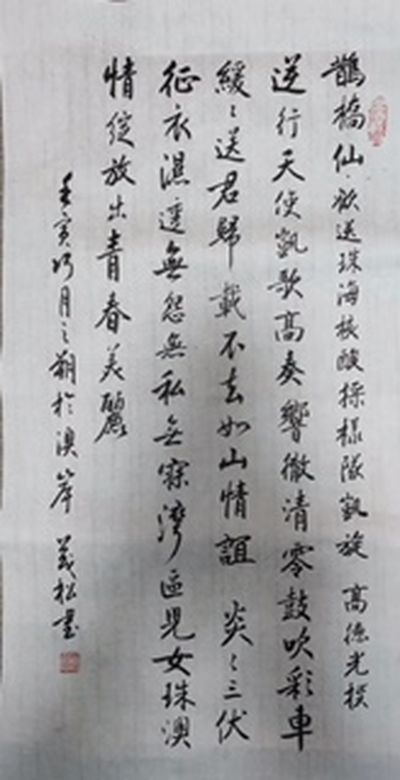 鵲橋仙 欢送珠海核酸採樣隊凱旋 高德光撰
逆行天使凱歌高奏響徹清零鼓吹彩車
緩〻送君歸載不去如山情誼 炎〻三伏
征衣濕透無怨無私無寐灣區兒女珠澳
情綻放出青春美麗
壬寅巧月之朔於澳岸 義松書